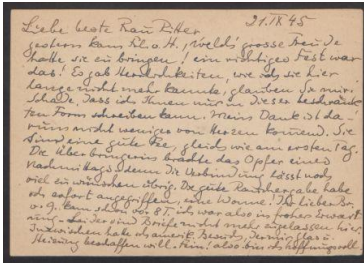 21.IX 45
Liebe beste Frau Ritter,
gestern kam Frl. a. H., welch' grosse Freude
hatte sie zu bringen! ein richtiges Fest war
das! Es gab Herrlichkeiten, wie ich sie hier
lange nicht mehr kannte, glauben Sie mir.
Schade, dass ich Ihnen nur in dieser beschränk-
ten Form schreiben kann. Mein Dank ist da-
rum nicht weniger von Herzen kommend. Sie
sind eine gute Fee, gleich wie am ersten Tag.
Die Überbringerin brachte das Opfer eines
Nachmittags, denn die Verbindung lässt noch
viel zu wünschen übrig. Die gute Rauchergabe habe
ich sofort angegriffen, eine Wonne! Ihr lieber Br.
v. 9. kam schon vor 8 T. ich war also in froher Erwart-
ung. Leider sind Briefe nicht mehr zugelassen hier.
Inzwischen habe ich amerik. Besuch, der mir Glas u.
Heizung beschaffen will. Fein! also bin ich hoffnungsvoll